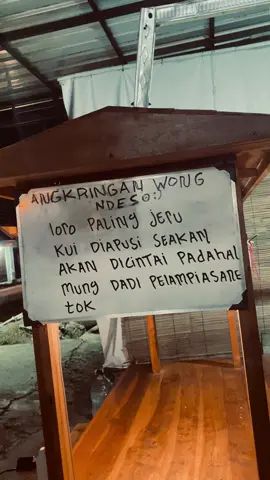 ANGKRINGAN WONG
NDESO:)
loro PALING JERU
KUI DIAPUSI SEAKAN
AKAN DICINTAI PADAHAL
MUNG DADI PELAMPIASANE
tok